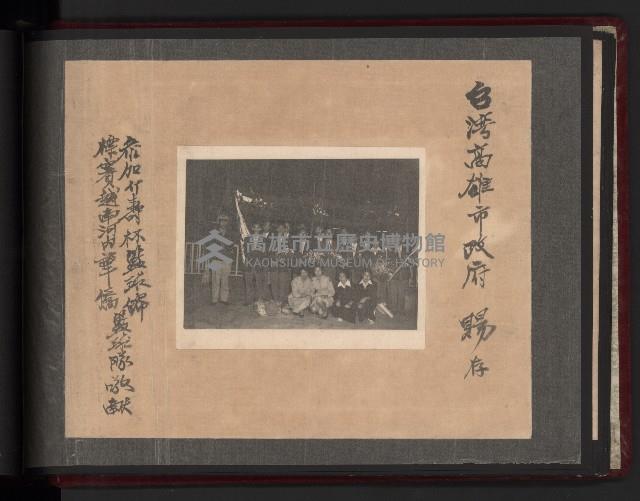 台湾高雄市政府 賜存
高雄市立歷史博物館
KAOHSIUNG MUSEUM OF HISTORY
參加介壽杯籃球錦
標賽越南河內華僑籃球隊敬獻